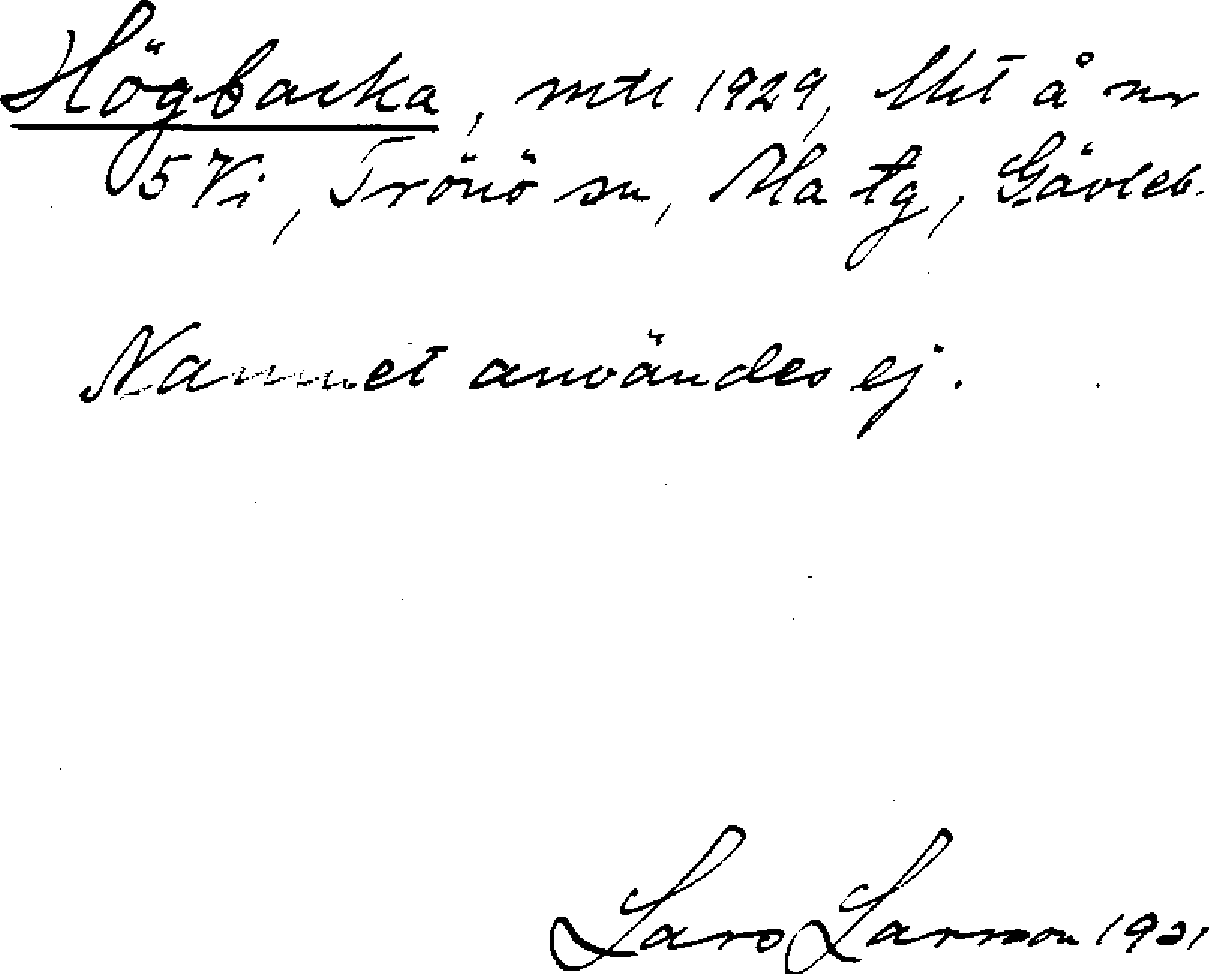 Högbacka, mtl 1929, Uht å nr
5 Vi, Trönö sn, Ala tg, Gävleb.
Namnet användes ej.
Lars Larsson 1931